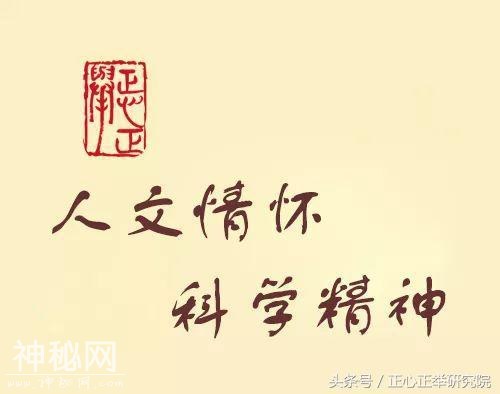 正心正舉
人文情怀
科学精神
神秘网
神秘网
头条号 / 正心正举研究院